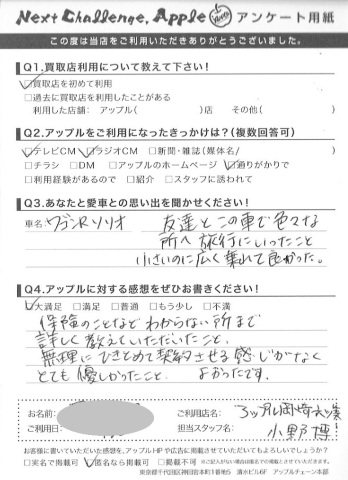 Next Challenge, Apple アンケート用紙
この度は当店をご利用いただきありがとうございました。
Q1.買取店利用について教えて下さい!
☑買取店を初めて利用
□過去に買取店を利用したことがある
利用した店舗: アップル( )店 その他( )
Q2.アップルをご利用になったきっかけは?(複数回答可)
☑テレビCM ☑ラジオCM □新聞・雑誌(媒体名/ )
□チラシ □DM □アップルのホームページ ☑通りがかりで
□利用経験があるので □紹介 □スタッフに誘われて
Q3.あなたと愛車との思い出を聞かせください!
車名 ワゴンRソリオ 友達とこの車で色々な
所へ旅行にいったこと
小さいのに広く乗れて良かった。
Q4.アップルに対する感想をぜひお書きください!
☑大満足 □満足 □普通 □もう少し □不満
保険のことなどわからない所まで
詳しく教えていただいたこと
無理にひきとめて契約させる感じがなく
とても優しかったこと よかったです。
お名前: ご利用店名: アップル岡崎大樹寺
ご利用日: 担当スタッフ名: 小野 博
お客様に書いていただいた感想を、アップルHPや広告に掲載させていただいてもよろしいでしょうか?
□実名で掲載可 ☑匿名なら掲載可 □掲載不可 ※ご記入がない場合は匿名での掲載とさせていただきます。
東京都千代田区神田岩本町1番地5 清水ビル6F アップルチェーン本部